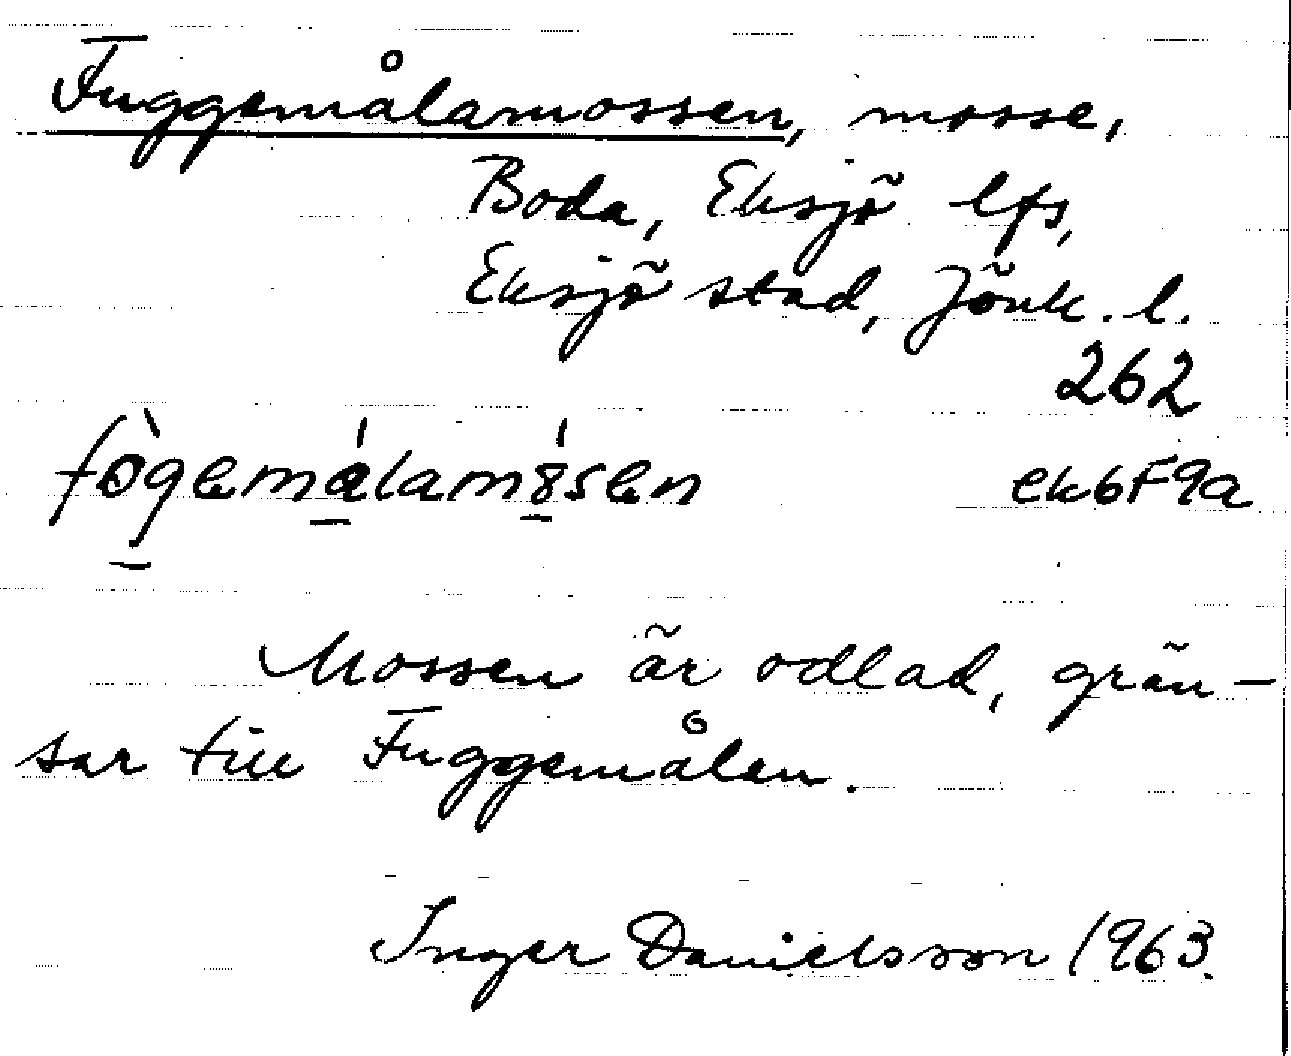 Fuggemålamossen, mosse,
Boda, Eksjö lfs,
Eksjö stad, Jönk. l.
262
fògemálamósen ek6F9a
Mossen är odlad, grän-
sar till Fuggemålen.
Inger Danielsson 1963.